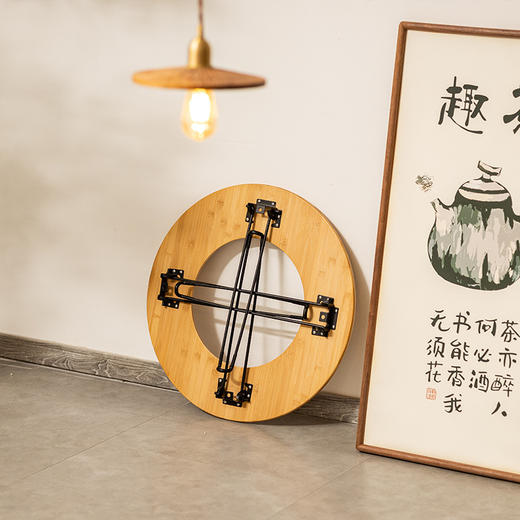 趣
茶亦醉人
何必酒
书能香我
无须花